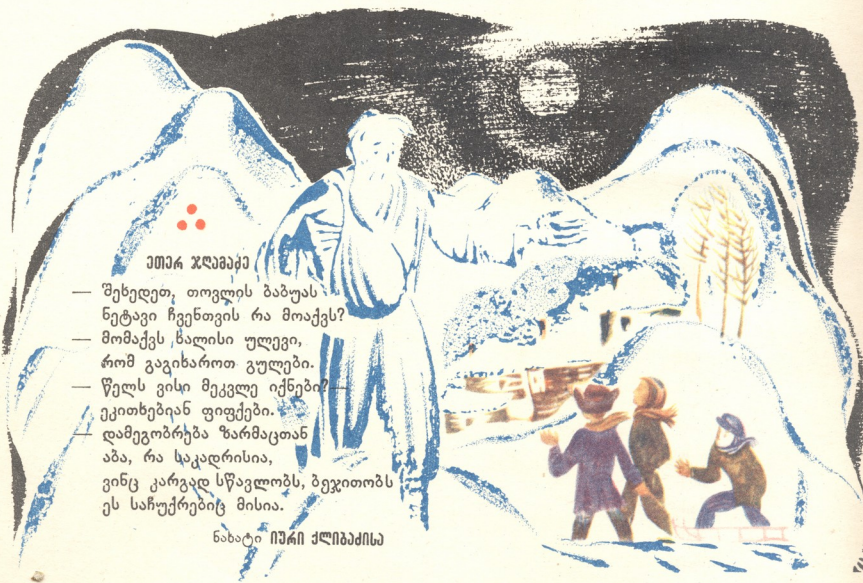 ეთერ ჯღამაძე
— შეხედეთ, თოვლის ბაბუას
ნეტავი ჩვენთვის რა მოაქვს?
— მომაქვს ხალისი ულევი,
რომ გაგიხაროთ გულები.
— წელს ვისი მეკვლე იქნები? —
ეკითხებიან ფიფქები.
— დამეგობრება ზარმაცთან
აბა, რა საკადრისია,
ვინც კარგად სწავლობს, ბეჯითობს
ეს საჩუქრებიც მისია.
ნახატი იური ქლიბაძისა